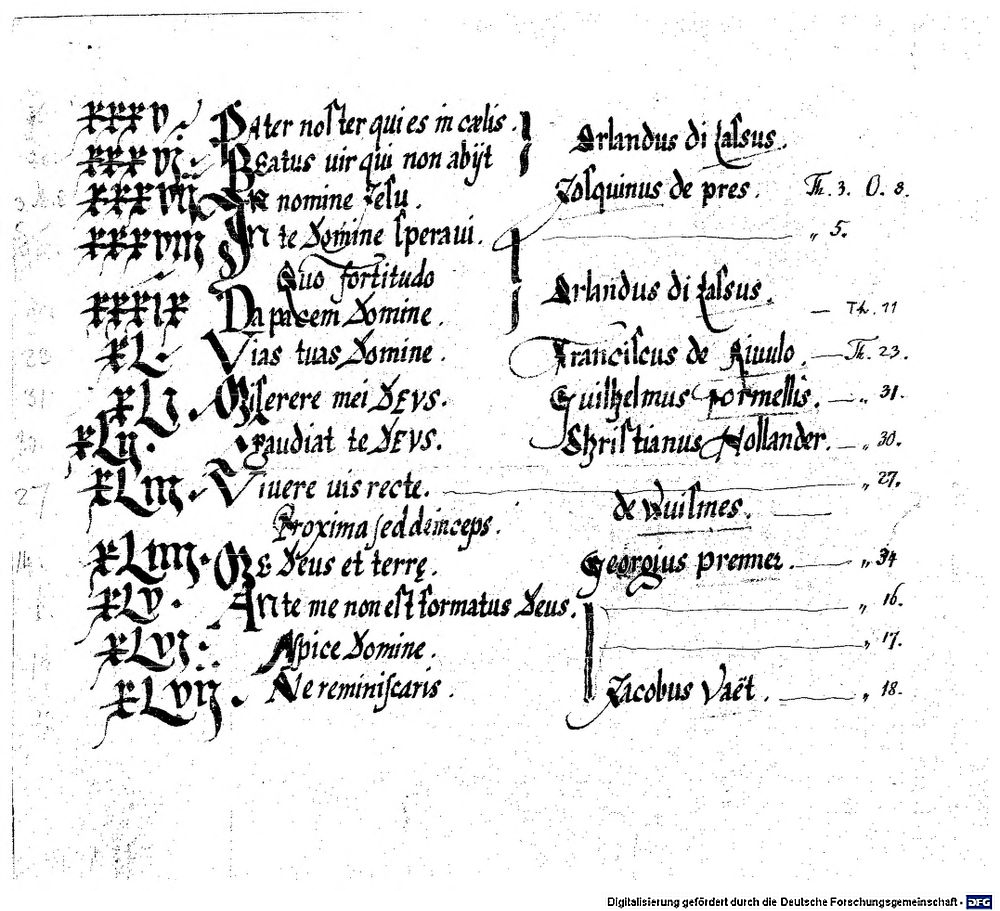 xxxv. Pater noster qui es in cælis. Orlandus di Lassus.
xxxvi. Beatus uir qui non abijt
xxxvii In nomine Jesu. Josquinus de pres. Th. 3. O. 8.
xxxviii In te Domine speraui. „ 5.
Quo fortitudo
xxxix Da pacem Domine. Orlandus di Lassus. — Th. 11
xL. Vias tuas Domine. Franciscus de Riuulo. — Th. 23.
xLi. Miserere mei DEVS. Guilhelmus formellis. — „ 31.
xLij. Gaudiat te DEVS. Christianus Hollander. — „ 30.
xLiii. Viuere uis recte. de Wuismes. „ 27.
Proxima sed deinceps.
xLiiii. Me Deus et terrę. Georgius prenner. — „ 34
xLv. Ante me non est formatus Deus. „ 16.
xLvi. Aspice Domine. „ 17.
xLvij. Ne reminiscaris. Jacobus Vaët. — „ 18.
Digitalisierung gefördert durch die Deutsche Forschungsgemeinschaft - DFG